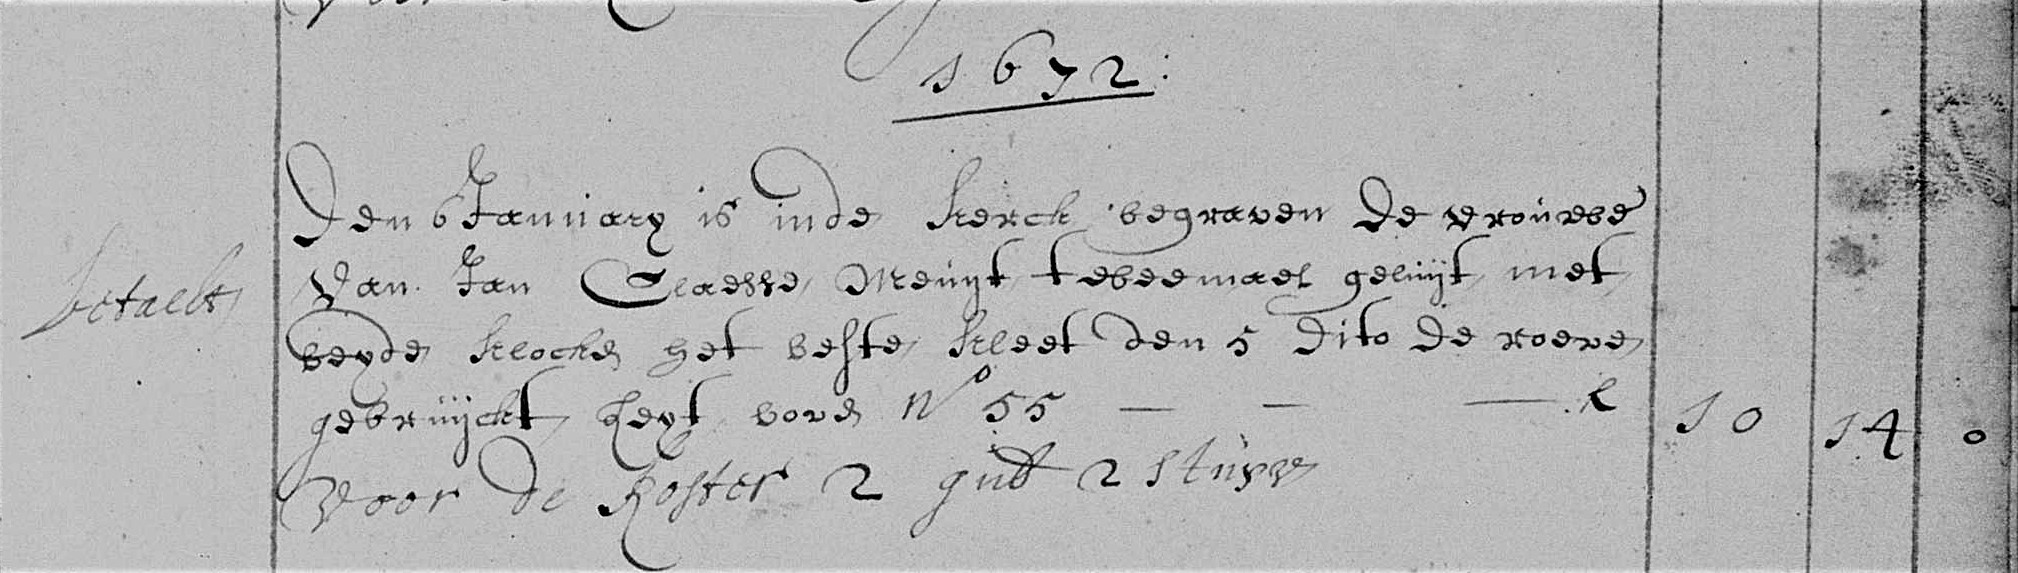 1672:
Den 6 January is inde kerck begraven de vrouwe
betaelt
van Jan Claesse Meuyt tweemael geluijt met
beyde klocke het beste kleet den 5 dito de roeve
gebruijckt leyt bove No 55 — — — . L 10 14 0
voor de koster 2 guld 2 stuyve